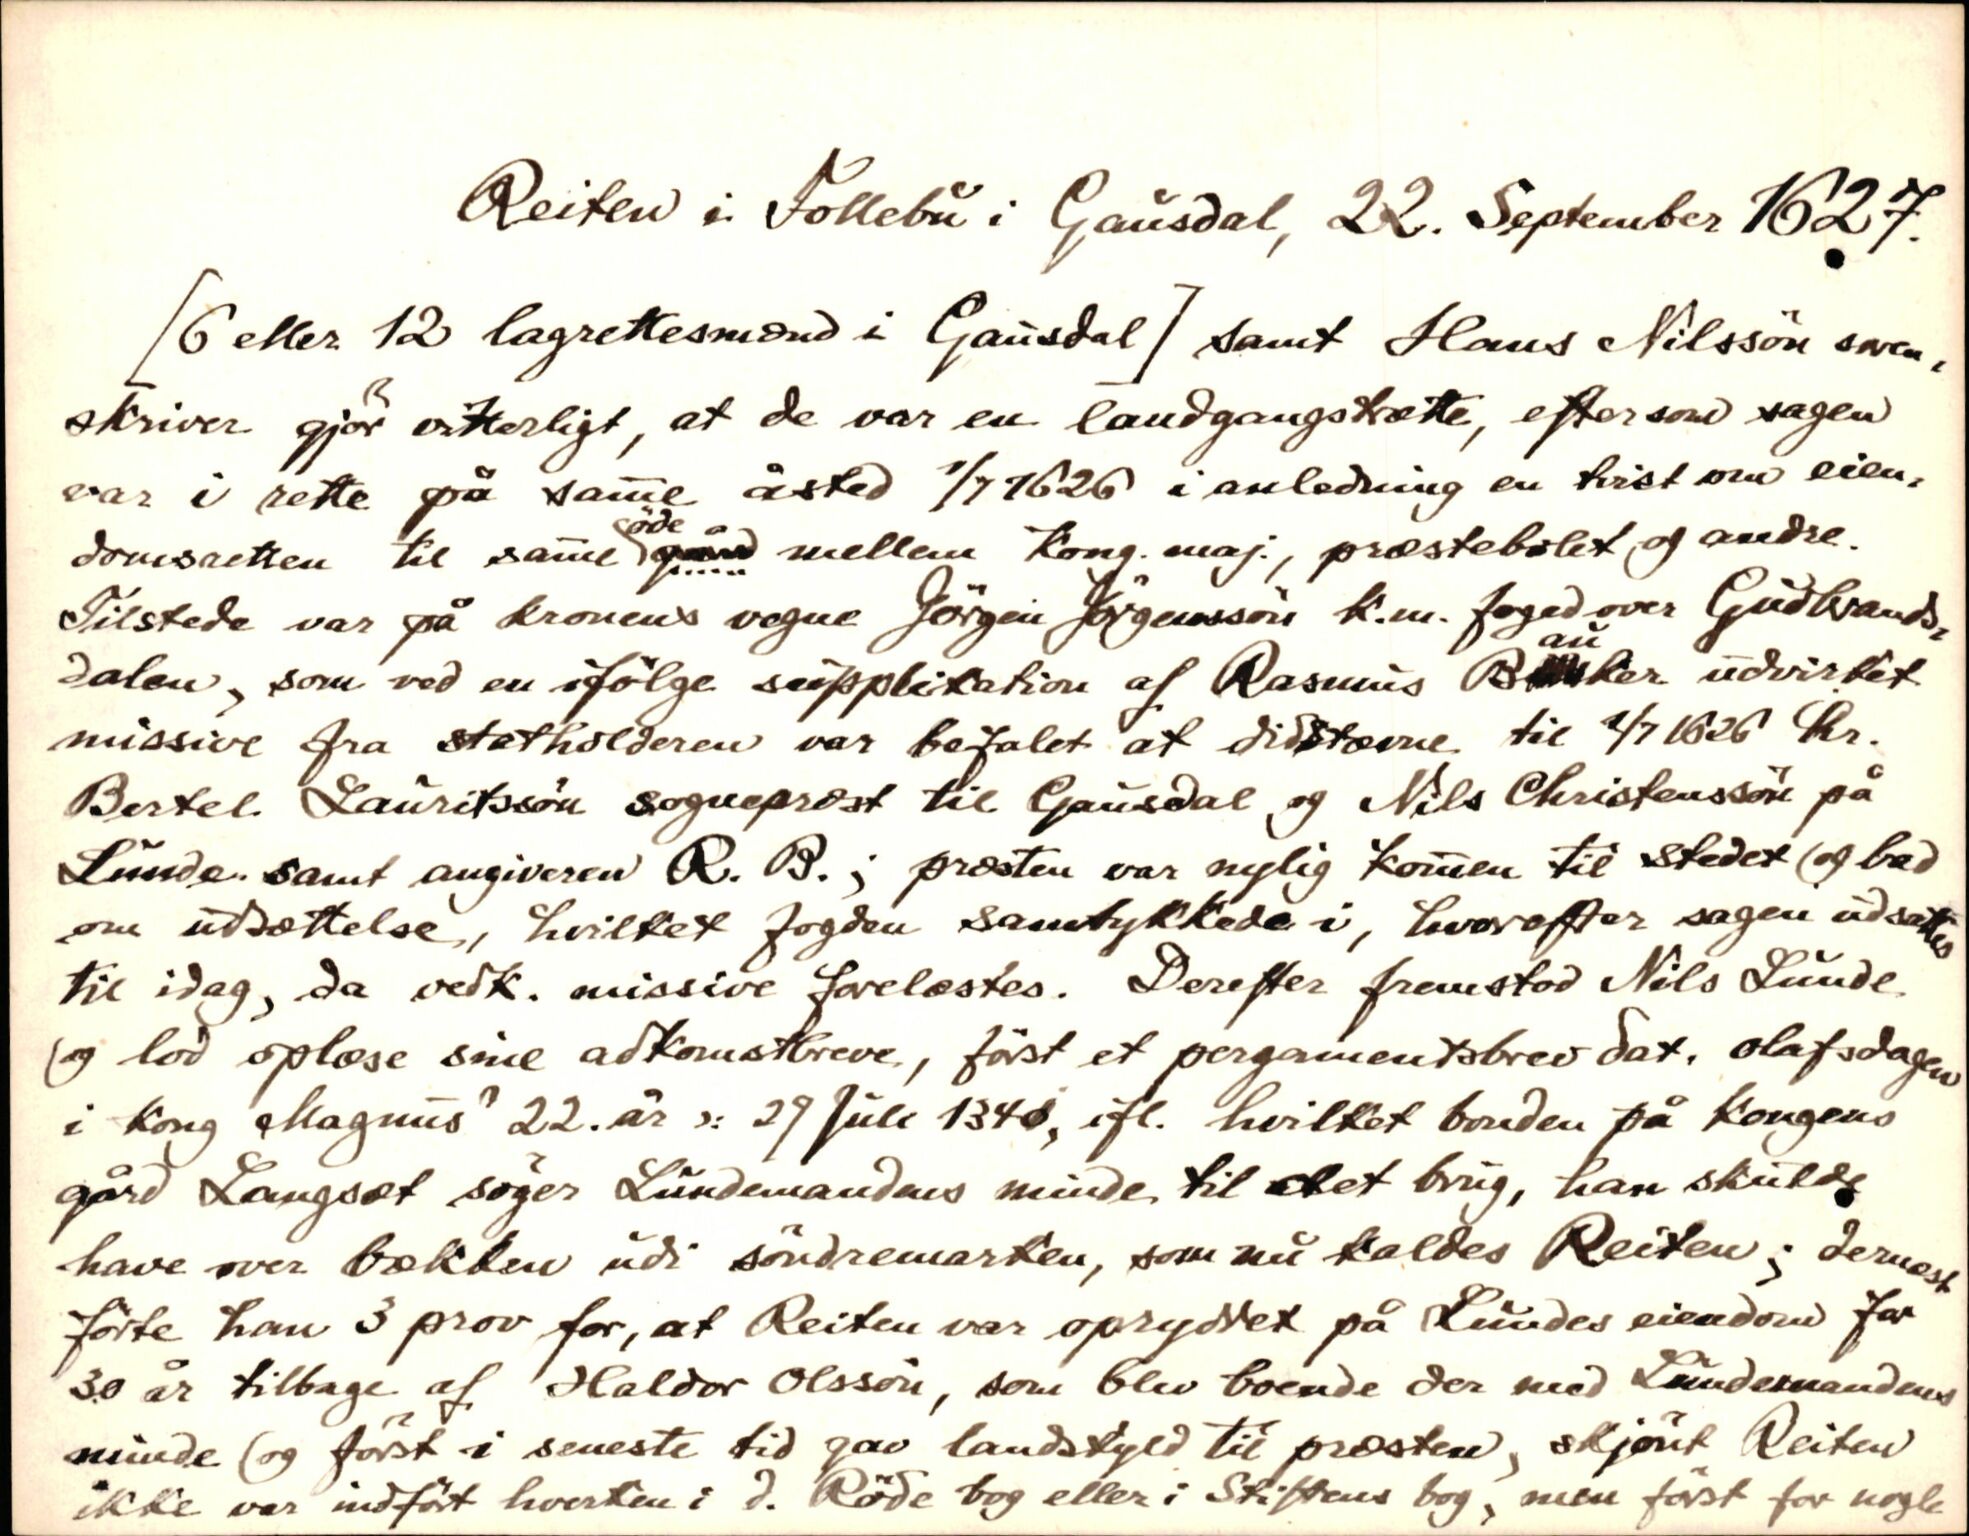 Reiten i Follebu i Gausdal, 22. September 1627.
[6 eller 12 lagrettesmænd i Gausdal] samt Hans Nilssön soren-
skriver gjör vitterligt, at de var en landgangstrætte, eftersom sagen
var i rette på samme åsted 1/7 1626 i anledning en tvist om eien-
domsretten til samme öde gård mellem Kong. maj., præstebolet og andre.
Tilstede var på kronens vegne Jörgen Jörgenssön k.m. foged over Gudbrands-
dalen, som ved en ifölge supplikation af Rasmus Bauker udvirket
missive fra statholderen var befalet at didstævne til 1/7 1626 hr.
Bertel Lauritssön sogneprest til Gausdal og Nils Christenssön på
Lunde samt angiveren R. B.; præsten var nylig kommen til stedet og bad
om udsættelse, hvilket fogden samtykkede i, hvorefter sagen udsattes
til idag, da vedk. missive forelæstes. Derefter fremstod Nils Lunde
og lod oplæse sine adkomstbreve, först et pergamentsbrev dat. Olafsdagen
i kong Magnus' 22. år ɔ: 29 Juli 1340, ifl. hvilket bonden på kongens
gård Langsæt söger Lundemandens minde til det brug, han skulde
have over bækken udi söndremarken, som nu kaldes Reiten; dernæst
förte han 3 prov for, at Reiten var opryddet på Lundes eiendom for
30 år tilbage af Haldor Olssön, som blev boende der med Lundemandens
minde og först i seneste tid gav landskyld til præsten, skjönt Reiten
ikke var indfört hverken i d. Röde bog eller i Stiftens bog, men först for nogle